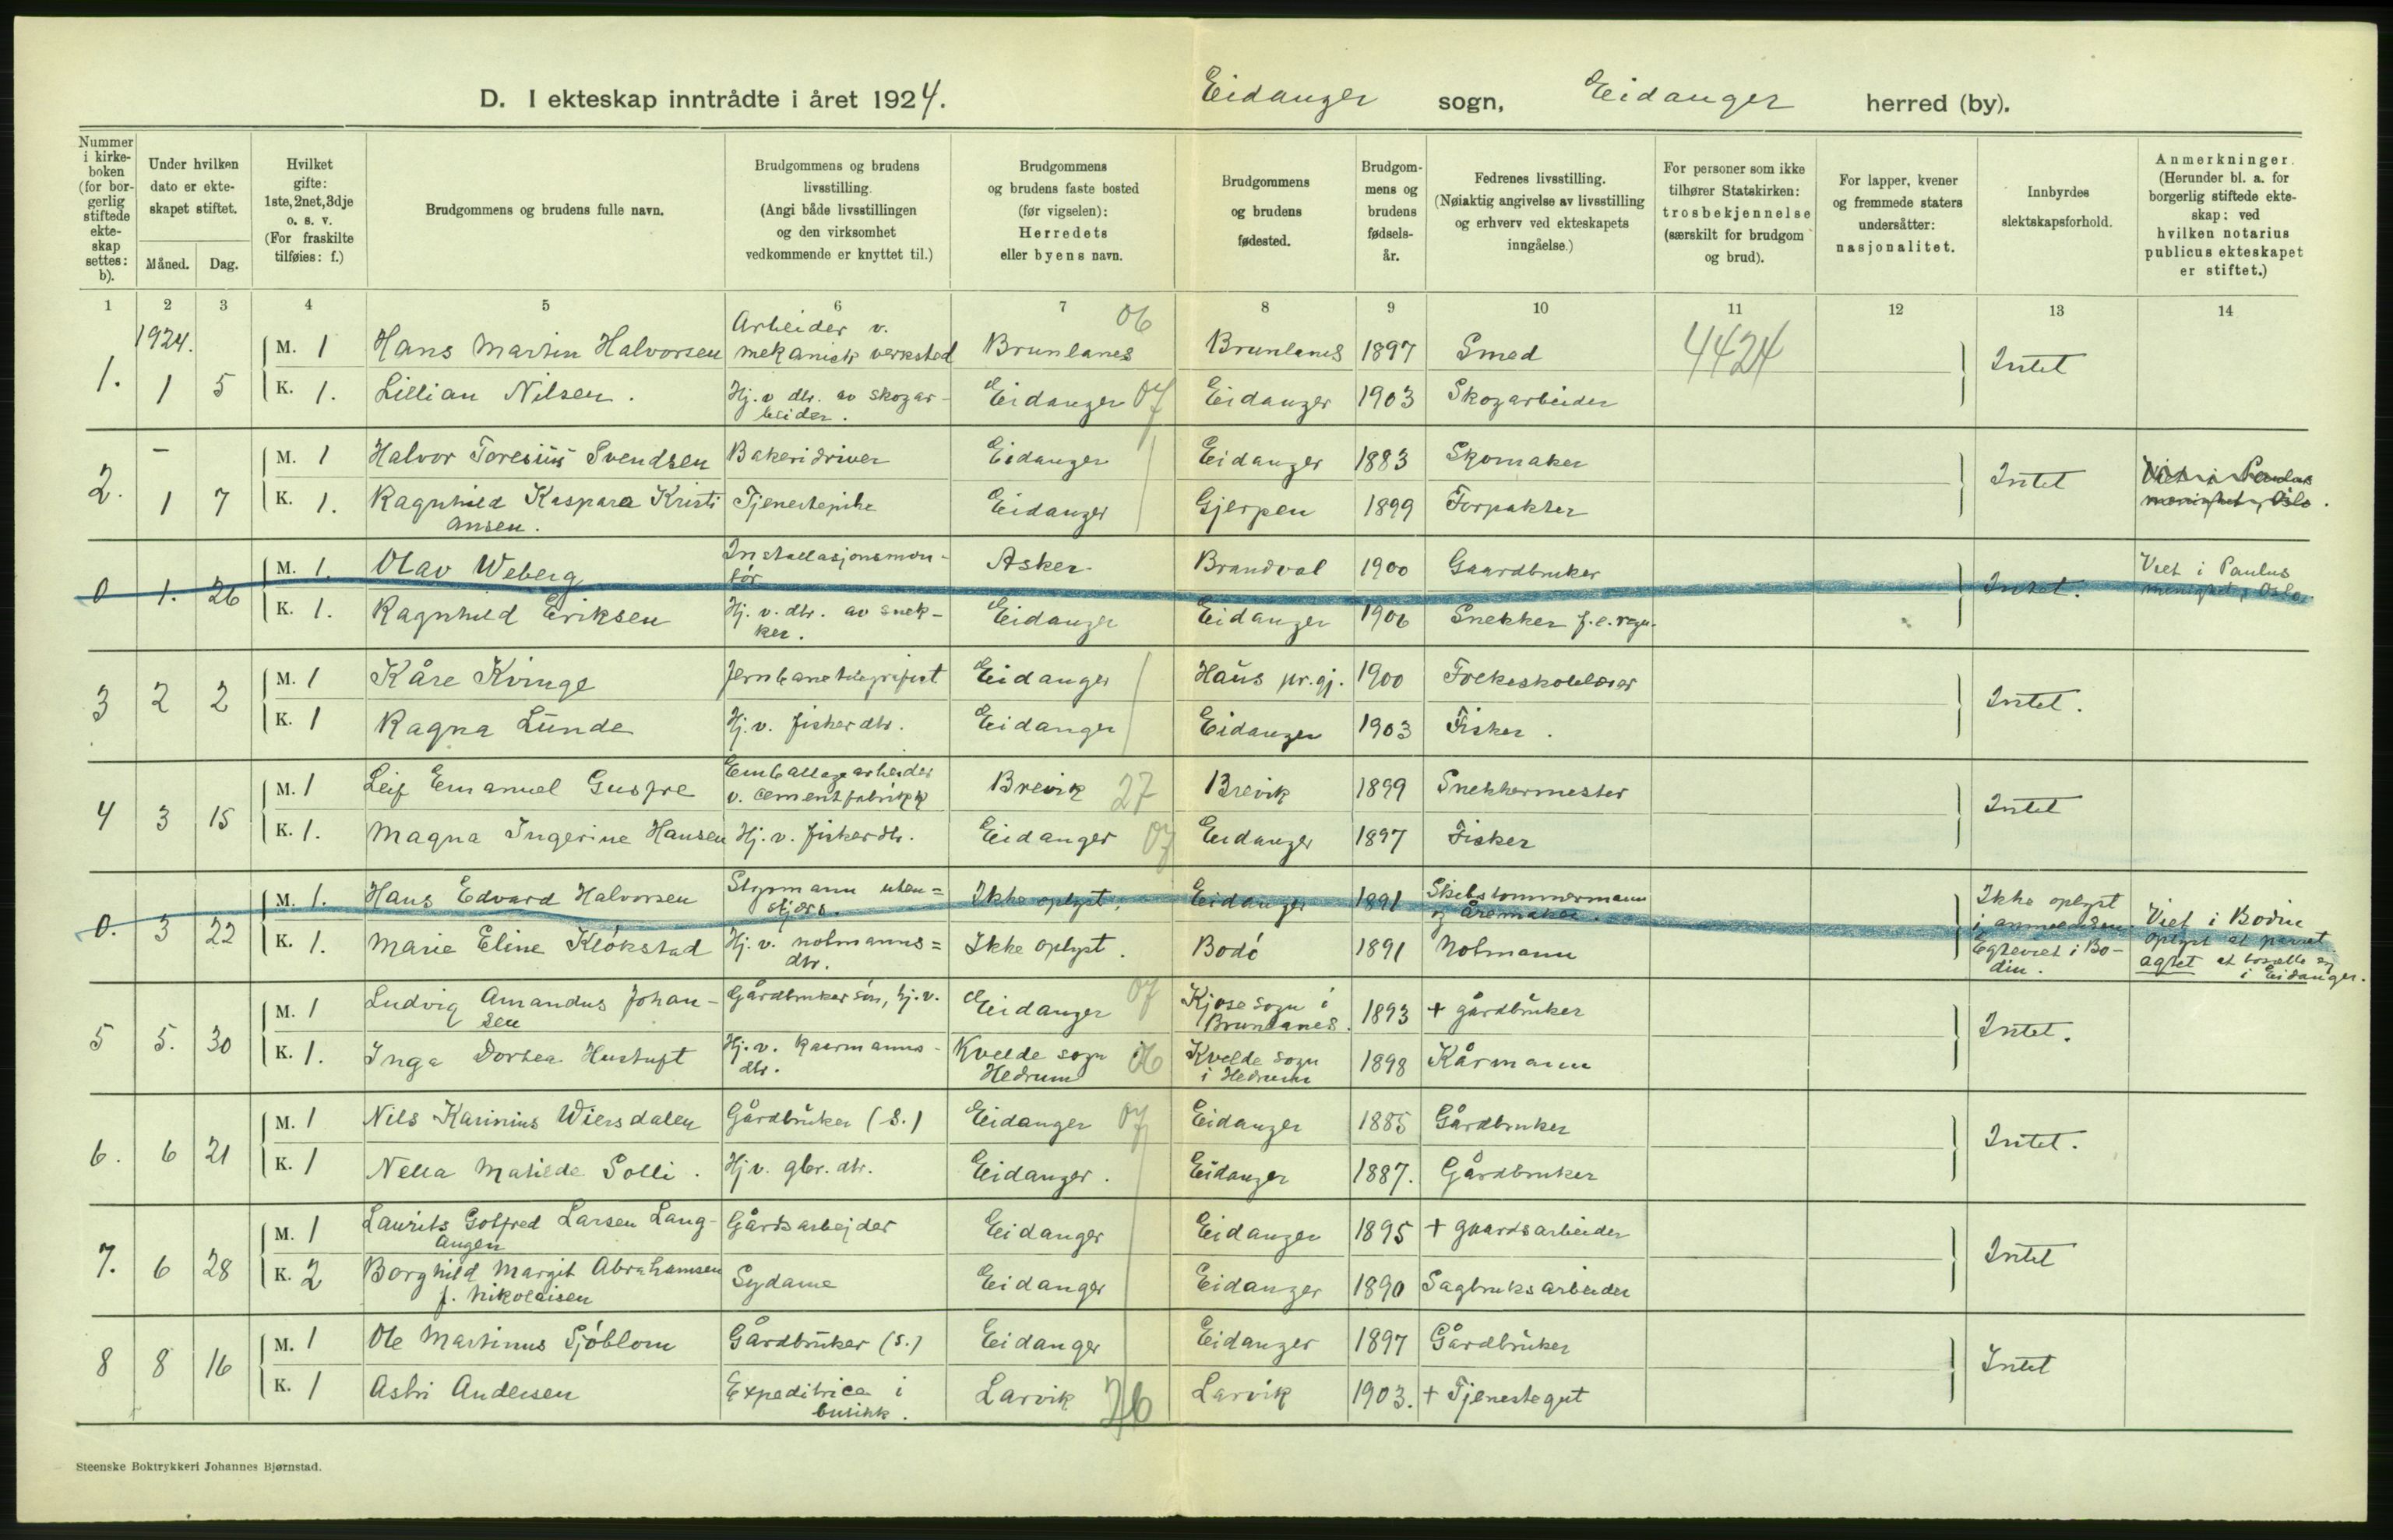 D. I ekteskap inntrådte i året 1924. Eidanger sogn, Eidanger herred (by).
Nummer i kirkeboken (for borgerlig stiftede ekteskap settes: b).
Under hvilken dato er ekteskapet stiftet.
Måned. Dag.
Hvilket gifte: 1ste, 2net, 3dje o. s. v. (For fraskilte tilføies: f.)
Brudgommens og brudens fulle navn.
Brudgommens og brudens livsstilling. (Angi både livsstillingen og den virksomhet vedkommende er knyttet til.)
Brudgommens og brudens faste bosted (før vigselen): Herredets eller byens navn.
Brudgommens og brudens fødested.
Brudgommens og brudens fødselsår.
Fedrenes livsstilling. (Nøiaktig angivelse av livsstilling og erhverv ved ekteskapets inngåelse.)
For personer som ikke tilhører Statskirken: trosbekjennelse (særskilt for brudgom og brud).
For lapper, kvener og fremmede staters undersåtter: nasjonalitet.
Innbyrdes slektskapsforhold.
Anmerkninger. (Herunder bl. a. for borgerlig stiftede ekteskap: ved hvilken notarius publicus ekteskapet er stiftet.)
1 2 3 4 5 6 7 8 9 10 11 12 13 14
1924. 06
1. 1 5 M. 1 Hans Martin Halvorsen Arbeider v. mekanisk verksted Brunlanes Brunlanes 1897 Smed 4424 Intet
K. 1. Lillian Nilsen. Hj. v dtr. av skogarbeider. Eidanger 07 Eidanger 1903 Skogarbeider
2. - 1 7 M. 1 Halvor Toresius Svendsen Bakeridriver Eidanger Eidanger 1883 Skomaker Intet Viet i Paulus menighet, Oslo.
K. 1. Ragnhild Kaspara Kristiansen. Tjenestepike Eidanger Gjerpen 1899 Forpakter
0 1. 26 M. 1. Olav Weberg Installasjonsmontör Asker Brandval 1900 Gaardbruker Intet. Viet i Paulus menighet, Oslo.
K. 1. Ragnhild Eriksen Hj. v. dtr. av snekker. Eidanger Eidanger 1906 Snekker f. e. regn.
3 2 2 M. 1 Kåre Kvinge Jernbanetelegrafist Eidanger Haus pr.gj. 1900 Folkeskolelærer Intet.
K. 1 Ragna Lunde Hj. v. fisker dtr. Eidanger Eidanger 1903 Fisker.
4 3 15 M. 1 Leif Emanuel Gusfre Emballagearbeider v. cementfabrikk Brevik 27 Brevik 1899 Snekkermester Intet
K. 1. Magna Ingerine Hansen Hj. v. fisker dtr. Eidanger 07 Eidanger 1897 Fisker
0. 3 22 M. 1. Hans Edvard Halvorsen Styrmann utenskjærs. Ikke oplyst. Eidanger 1891 Skibstømmermann og åremaker. Ikke oplyst i anmeldelsen. Egteviet i Bodin. Viet i Bodin oplyst at parret agtet at bosætte sig i Eidanger.
K. 1. Marie Eline Klökstad Hj. v. notmanns= dtr. Ikke oplyst. Bodö 1891 Notmann
5 5. 30 M. 1 Ludvig Amandus Johansen Gårdbrukersön, hj. v. Eidanger 07 Kjose sogn i Brunlanes. 1893 + gårdbruker Intet.
K. 1. Inga Dortea Hustuft Hj. v. kaarmanns- dtr. Kvelde sogn Hedrum 06 Kvelde sogn i Hedrum 1898 Kårmann
6. 6 21 M. 1 Nils Karinius Wiersdalen Gårdbruker (S.) Eidanger 07 Eidanger 1885 Gårdbruker Intet.
K. 1 Nella Matilde Solli. Hj v. gbr. dtr. Eidanger. Eidanger 1887. Gårdbruker
7. 6 28 M. 1 Laurits Gotfred Larsen Langangen Gårdsarbejder Eidanger Eidanger 1895 + gaardsarbeider Intet
K. 2 Borghild Margit Abrahamsen f. Nikolaisen Sydame Eidanger Eidanger 1890 Sagbruksarbeider
8 8 16 M. 1 Ole Martinus Sjöblom Gårdbruker (S.) Eidanger Eidanger 1897 Gårdbruker Intet
K. 1 Astri Andersen Expeditrice i butikk. Larvik 26 Larvik 1903. + Tjenestegut
Steenske Boktrykkeri Johannes Bjørnstad.